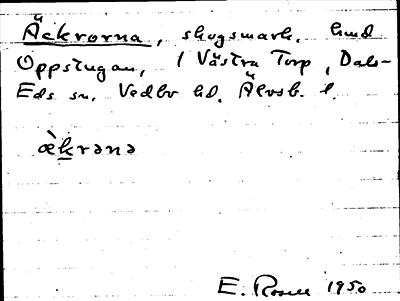 Äckrorna, skogsmark, hmd
Oppstugan, 1 Västra Torp, Dals-
Eds sn, Vedbo hd, Älvsb. l.
æ̀krənə
E. Rosell 1950